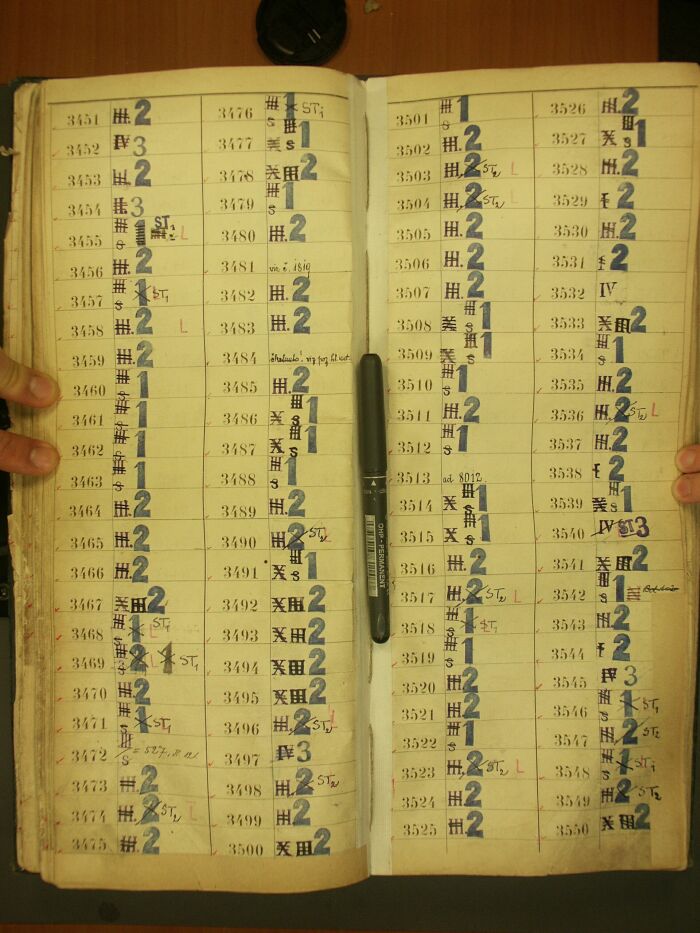 3451 III. 2
3452 IV 3
3453 III. 2
3454 3
3455 1 ST L
3456 III. 2
3457 III s 1 ST1
3458 III. 2 L
3459 III. 2
3460 III s 1
3461 III s 1
3462 III s 1
3463 III s 1
3464 III. 2
3465 III. 2
3466 III. 2
3467 X III 2
3468 III s 1 ST1 L
3469 2 L 1 ST1
3470 III. 2
3471 III s 1 ST1
3472 III s
3473 III. 2
3474 III. 2 ST2 L
3475 III. 2
3476 III s 1 ST1
3477 X III s 1
3478 X III 2
3479 III s 1
3480 III. 2
3481 viz č. 1819
3482 III. 2
3483 III. 2
3484
3485 III. 2
3486 X III s 1
3487 X III s 1
3488 III s 1
3489 III. 2
3490 III. 2 ST2 L
3491 X III s 1
3492 X III 2
3493 X III 2
3494 X III 2
3495 X III 2
3496 III. 2 ST2 L
3497 IV 3
3498 III. 2 ST2
3499 III. 2
3500 X III 2
OHP-PERMANENT
3501 III s 1
3502 III. 2
3503 III. 2 ST2 L
3504 III. 2 ST2 L
3505 III. 2
3506 III. 2
3507 III. 2
3508 X III s 1
3509 X III s 1
3510 III s 1
3511 III. 2
3512 III s 1
3513 ad 8012
3514 X III s 1
3515 X III s 1
3516 III. 2
3517 III. 2 ST2 L
3518 III s 1 ST1
3519 III s 1
3520 III. 2
3521 III. 2
3522 III s 1
3523 III. 2 ST2 L
3524 III. 2
3525 III. 2
3526 III. 2
3527 X III s 1
3528 III. 2
3529 2
3530 III. 2
3531 2
3532 IV
3533 X III 2
3534 III s 1
3535 III. 2
3536 III. 2 ST2 L
3537 III. 2
3538 2
3539 X III s 1
3540 IV ST 3
3541 X III 2
3542 III s 1
3543 III. 2
3544 2
3545 IV 3
3546 III s 1 ST1
3547 III. 2 ST2
3548 III s 1 ST1
3549 III. 2 ST2
3550 X III 2